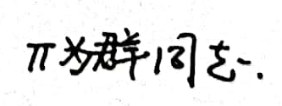 π为群同态.